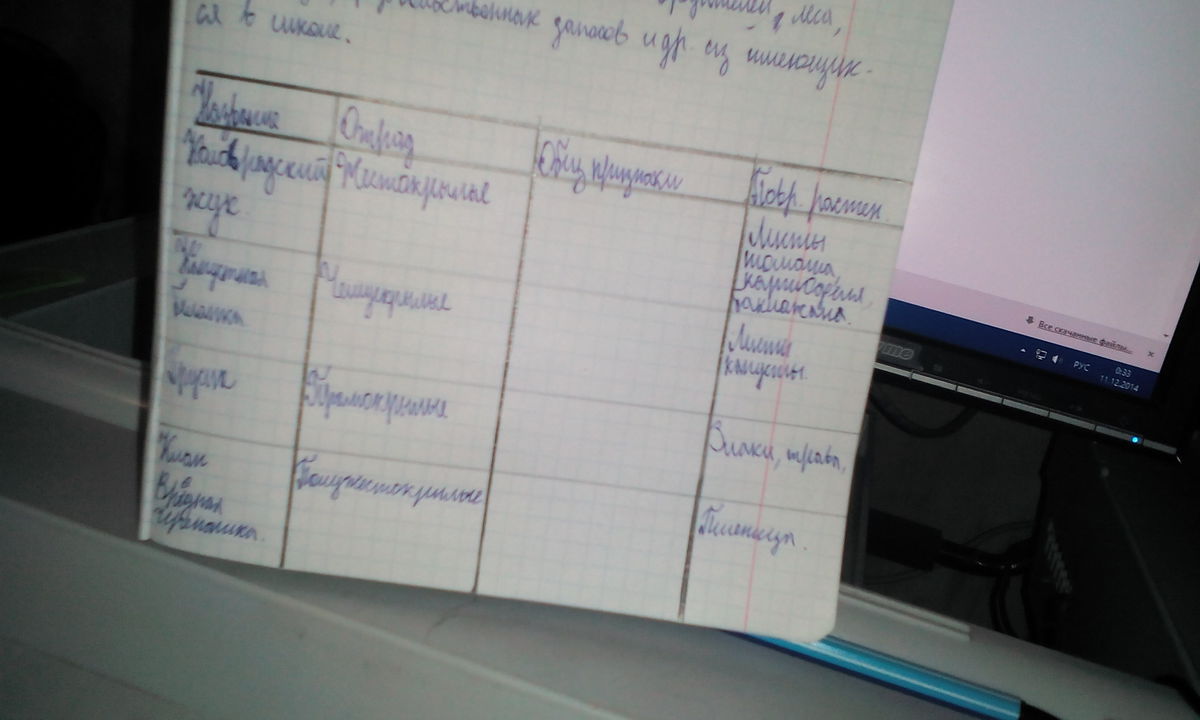 запасов и др. из имеющих-
ся в школе.
Название
Отряд
Общ признаки
Повр. растен.
Колорадский
жук.
Жесткокрылые
Листы
томата,
картофеля,
баклажана.
Капустная
белянка
Чешуекрылые
Листы
капусты.
Прямокрылые
Злаки, травы,
Клоп
вредная
черепашка.
Полужесткокрылые
Пшеницы.
Все скачанные файлы...
РУС
0:33
11.12.2014